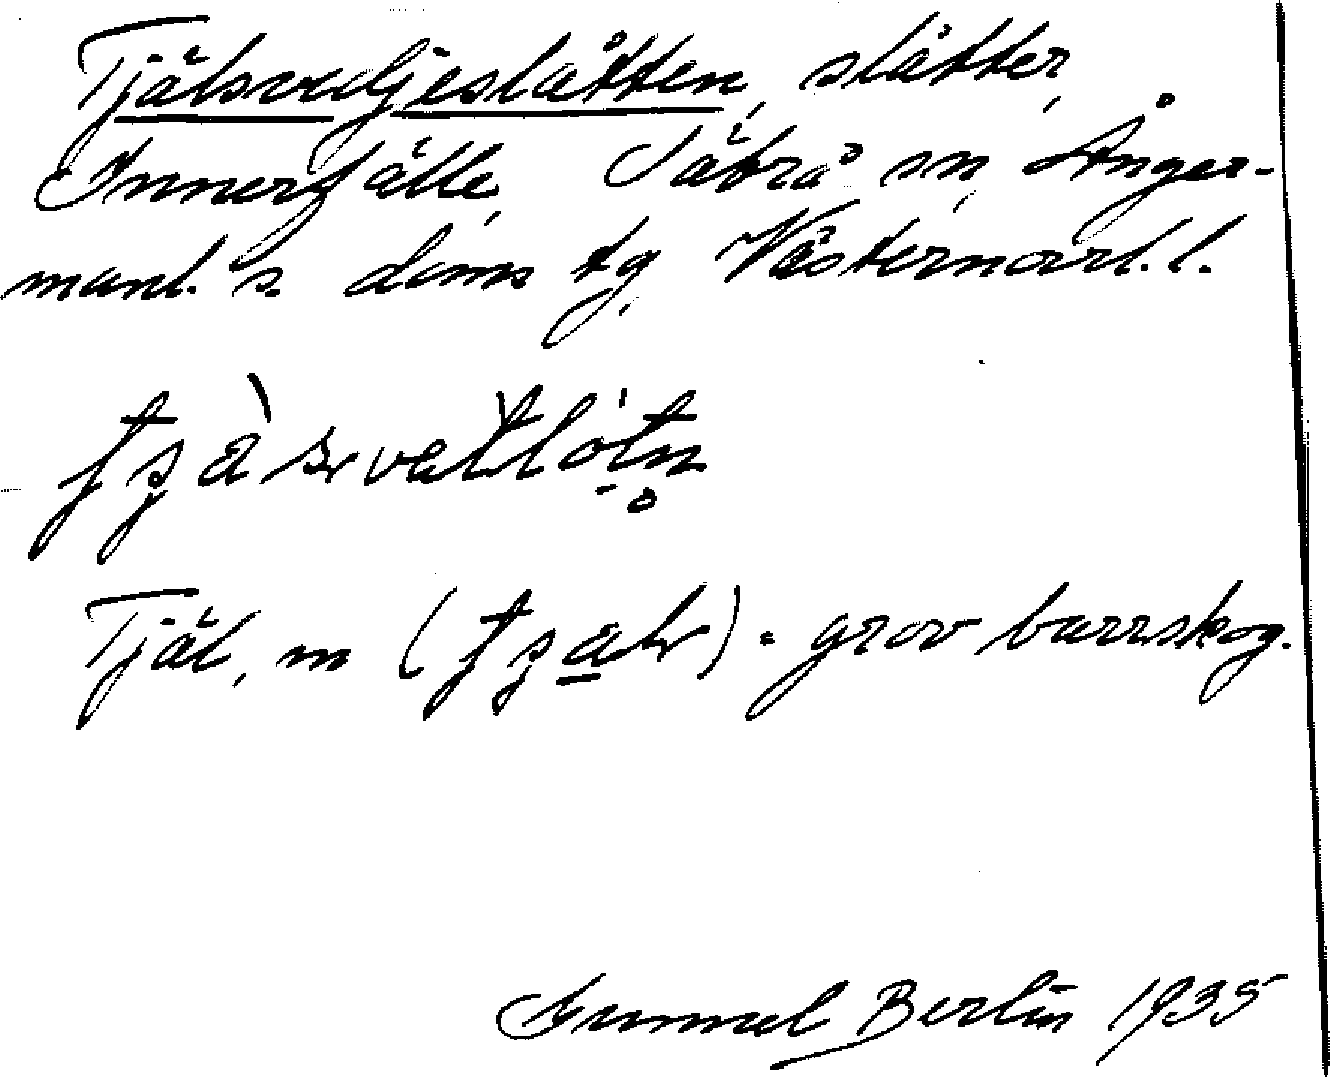 Tjälsveljeslåtten, slåtter,
Innerfälle, Säbrå sn, Ånger-
manl. s. doms tg, Västernorrl. l.
Tjäl, m ( ) = grov barrskog.
Gunnel Berlin 1935